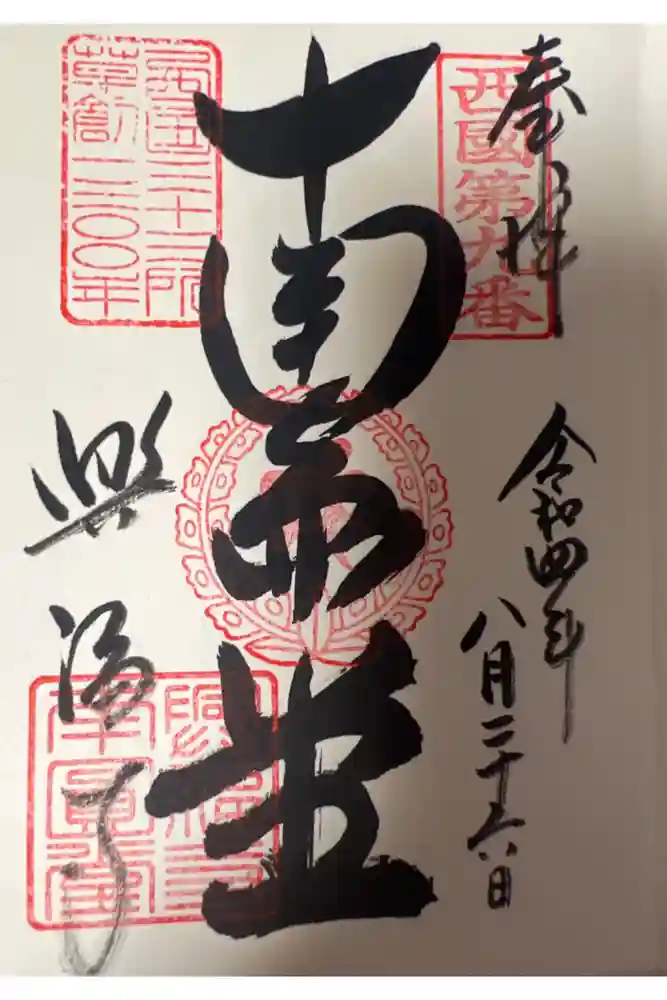 奉拝
西國第九番
令和四年
八月二十六日
南円堂
西国三十三所
草創一三〇〇年
興福寺
興福寺
南圓堂